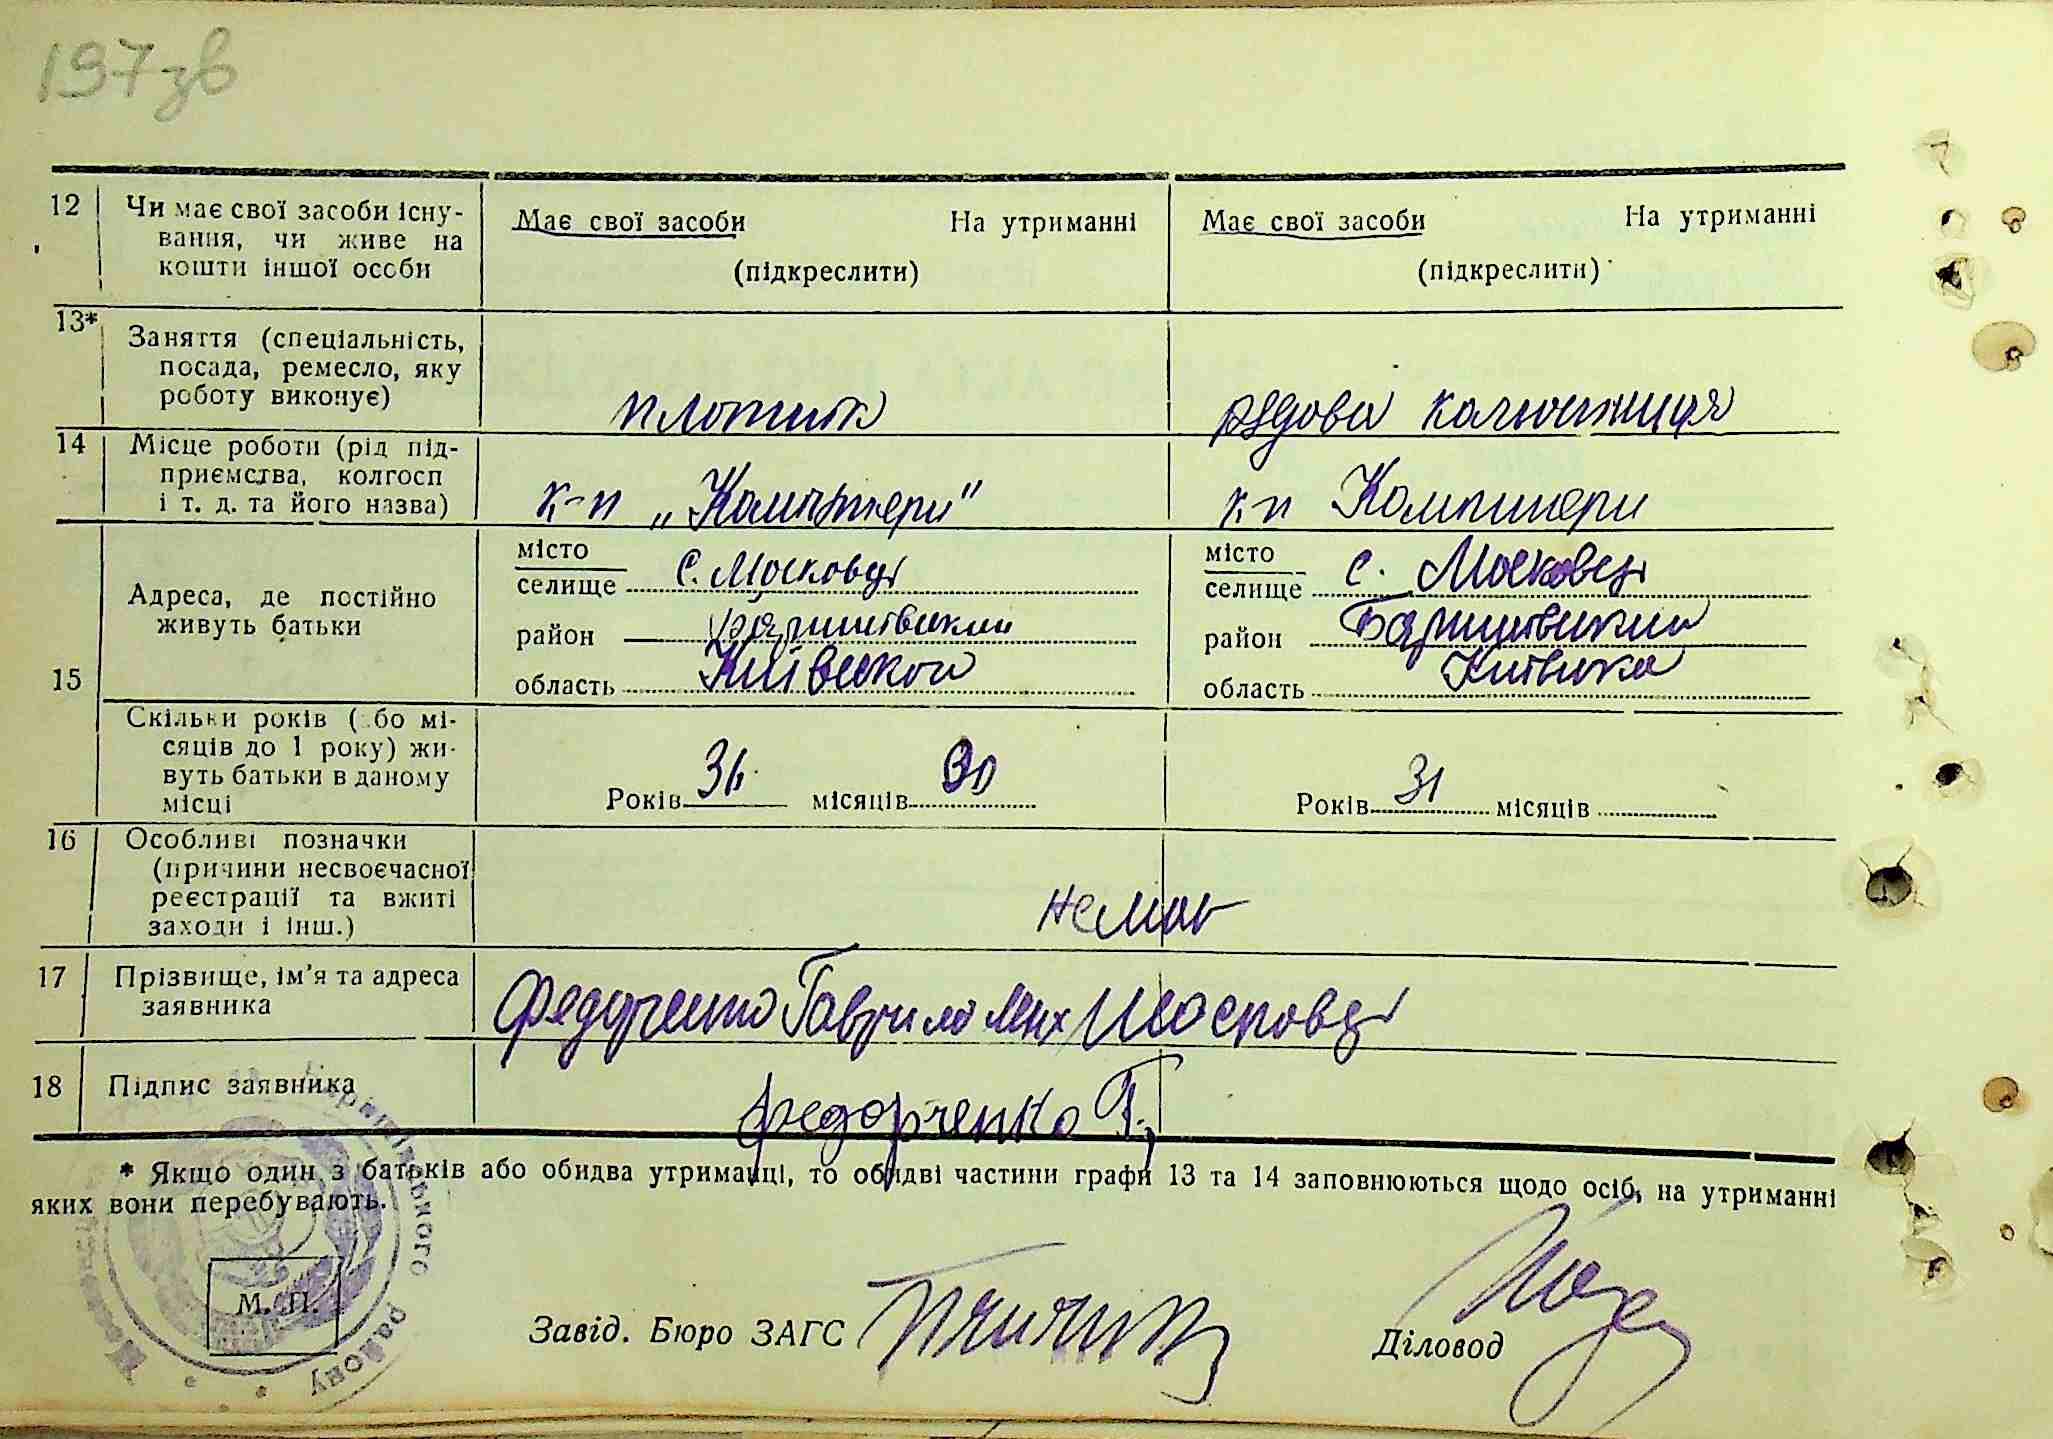 197 зв
12 Чи має свої засоби існу-
вання, чи живе на
кошти іншої особи
Має свої засоби На утриманні
(підкреслити)
Має свої засоби На утриманні
(підкреслити)
13* Заняття (спеціальність,
посада, ремесло, яку
роботу виконує)
плотник
рядова колгоспниця
14 Місце роботи (рід під-
приємства, колгосп
і т. д. та його назва)
к-п "Комінтерн"
к-п Комінтерн
15 Адреса, де постійно
живуть батьки
місто
селище с. Московці
район Баришівський
область Київської
місто
селище с. Московці
район Баришівський
область Київська
Скільки років (або мі-
сяців до 1 року) жи-
вуть батьки в даному
місці
Років 31 місяців
Років 31 місяців
16 Особливі позначки
(причини несвоєчасної
реєстрації та вжиті
заходи і інш.)
немає
17 Прізвище, ім'я та адреса
заявника
Федорченко Гаврило Мих Московці
18 Підпис заявника
Федорченко Г.
* Якщо один з батьків або обидва утриманці, то обидві частини графи 13 та 14 заповнюються щодо осіб, на утриманні
яких вони перебувають.
М. П.
Завід. Бюро ЗАГС
Діловод
району